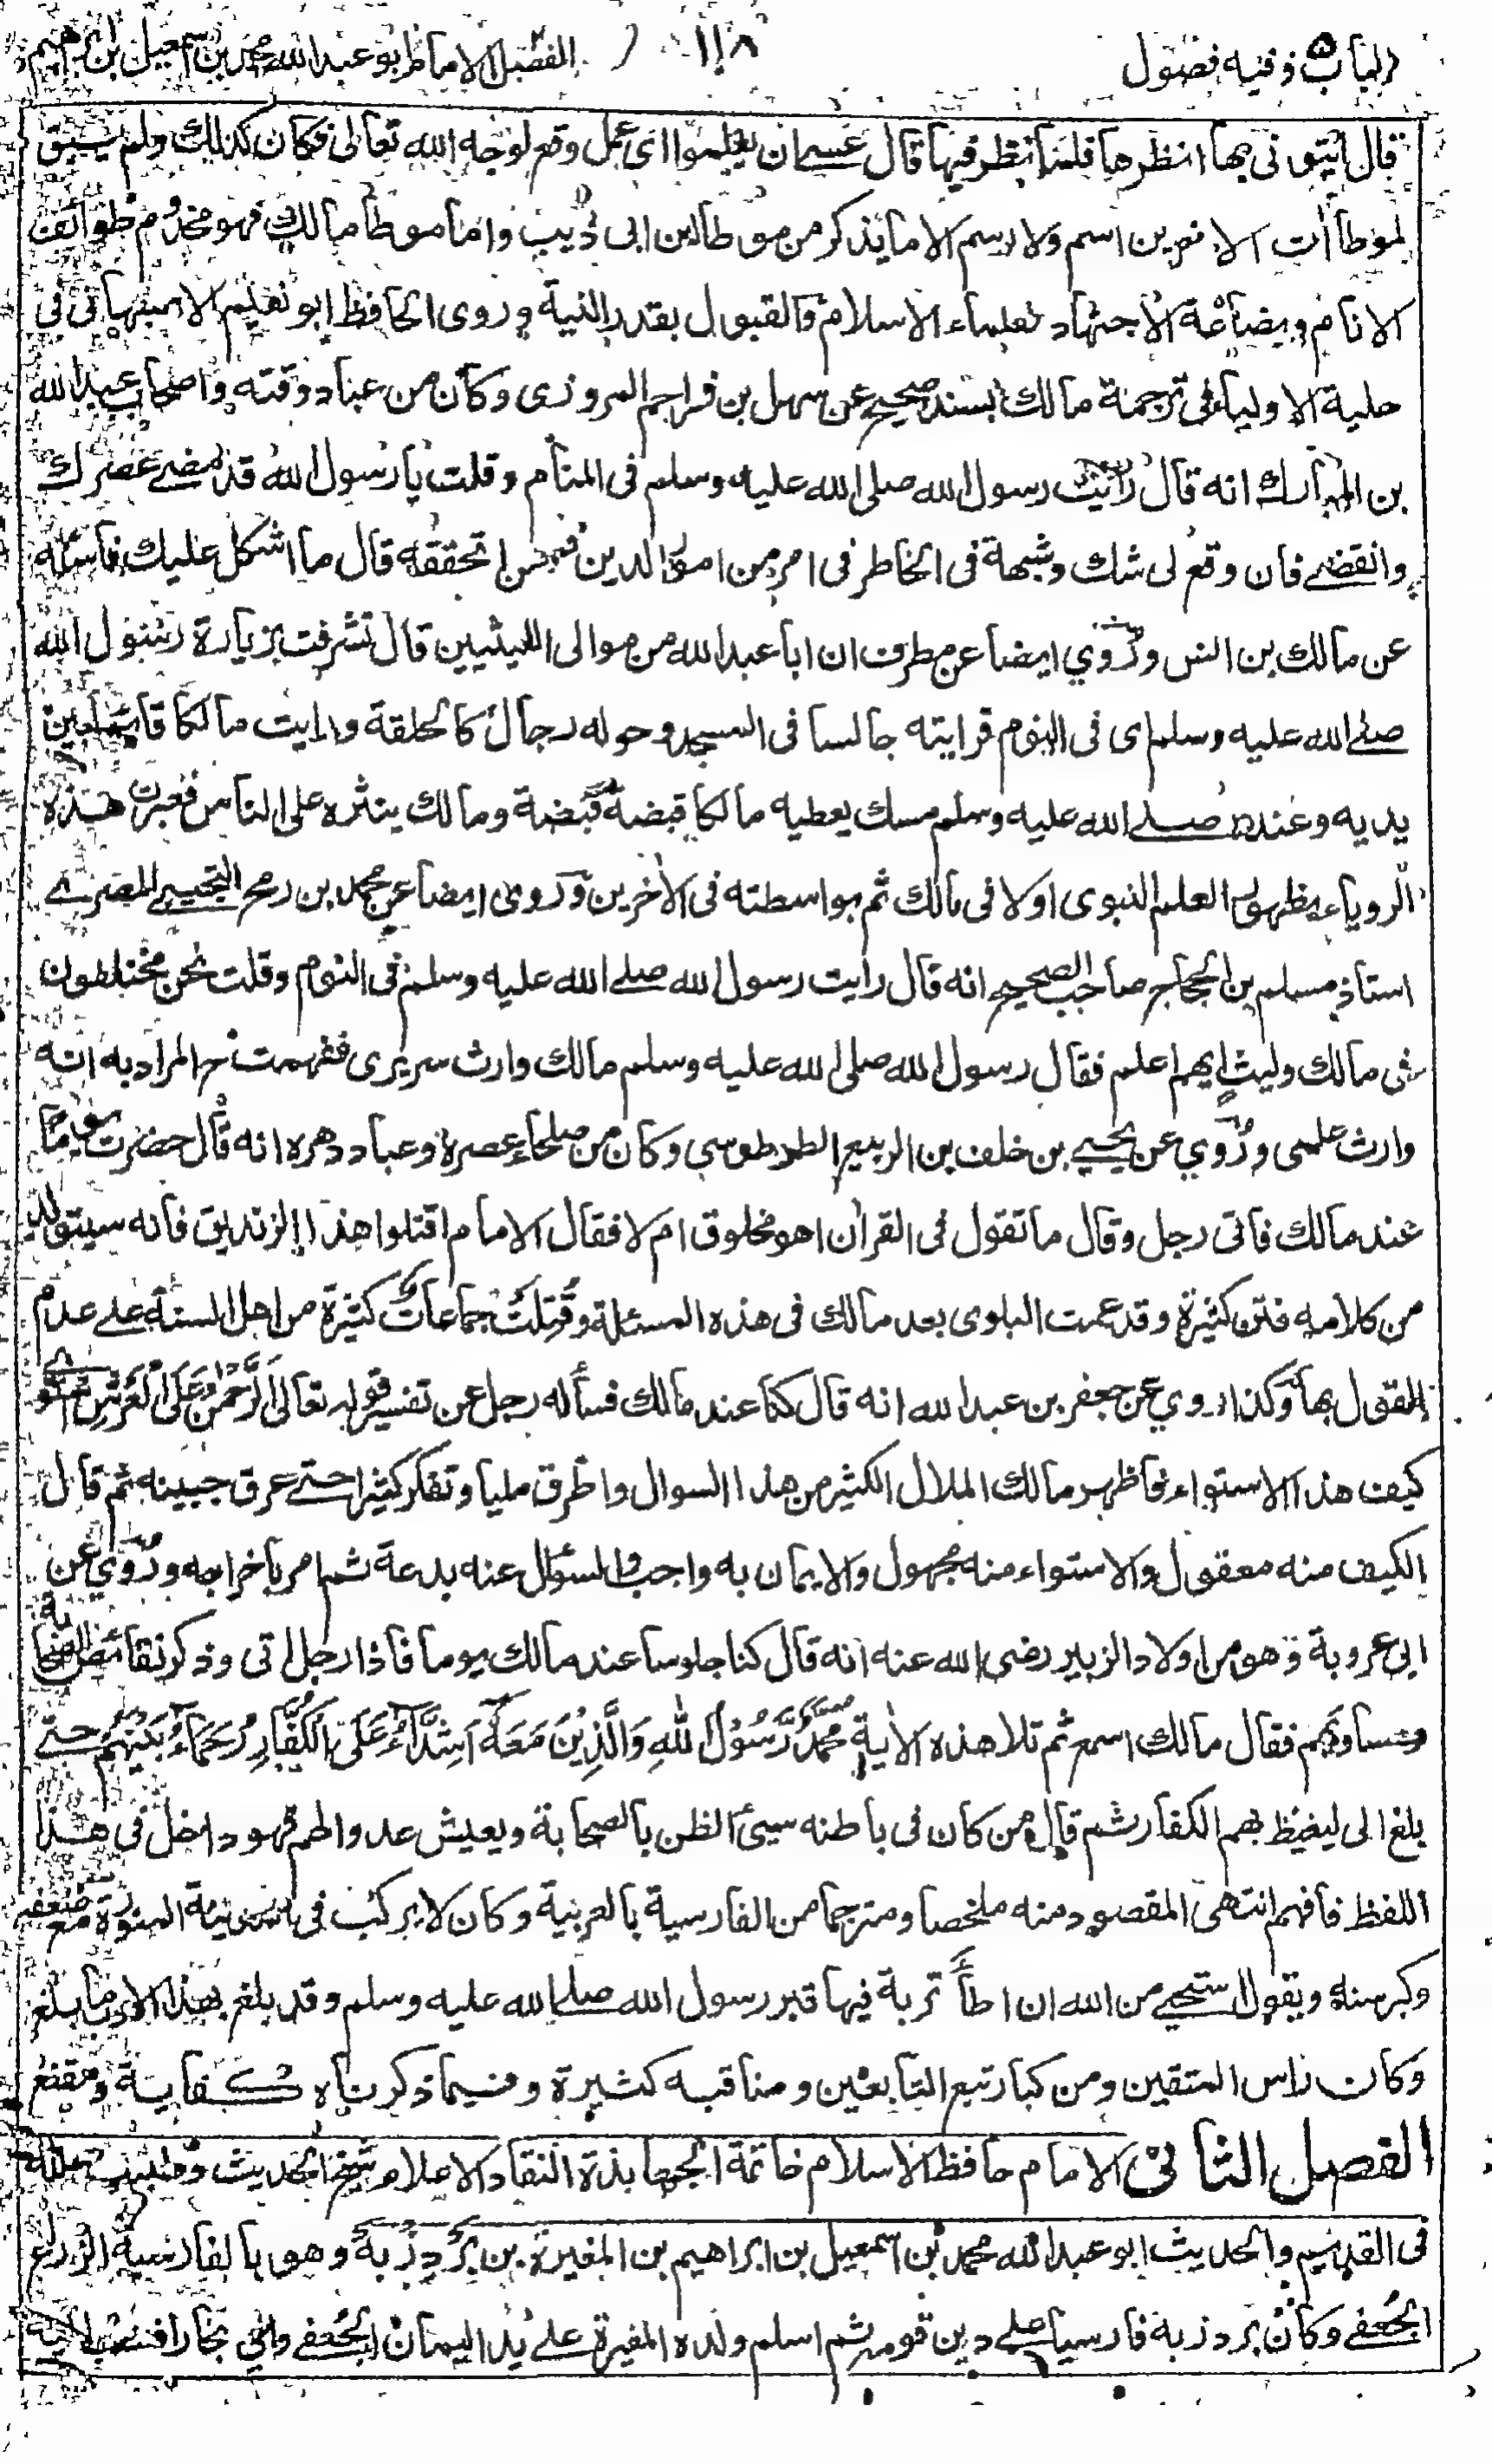 الباب ٥ وفيه فصول
١١٨
الفصل ٢ الامام ابو عبد الله محمد بن اسمعيل بن ابراهيم
قال ائتوني بها انظرها فلما نظر فيها قال عسى ان يعلموا اي عمل وقع لوجه الله تعالى فكان كذلك ولم يبق
لموطأات الاخرين اسم ولا رسم الا ما يذكر من موطا ابن ابي ذيب واما موطا مالك فهو مخدوم طوائف
الانام وبضاعة الاجتهاد لعلماء الاسلام والقبول بقدر النية وروى الحافظ ابو نعيم الاصبهاني في
حلية الاولياء في ترجمة مالك بسند صحيح عن سهل بن فراجم المروزى وكان من عباد وقته واصحاب عبد الله
بن المبارك انه قال رايت رسول الله صلى الله عليه وسلم في المنام وقلت يا رسول الله قد مضى عصرك
وانقضى فان وقع لى شك وشبهة فى الخاطر فى امر من امور الدين فممن اتحققه قال ما اشكل عليك فاسئله
عن مالك بن انس وروي ايضا عن مطرف ان ابا عبد الله من موالى الليثيين قال تشرفت بزيارة رسول الله
صلى الله عليه وسلم اى فى النوم فرايته جالسا فى المسجد وحوله رجال كالحلقة ورايت مالكا قائما بين
يديه وعنده صلى الله عليه وسلم مسك يعطيه مالكا قبضة قبضة ومالك ينثره على الناس فعبرت هذه
الروياء بظهور العلم النبوى اولا فى مالك ثم بواسطته فى الاخرين وروى ايضا عن محمد بن رمح التجيبي المصري
استاذ مسلم بن الحجاج صاحب الصحيح انه قال رايت رسول الله صلى الله عليه وسلم فى النوم وقلت نحن مختلفون
فى مالك وليث ايهم اعلم فقال رسول الله صلى الله عليه وسلم مالك وارث سريرى ففهمت ان المراد به انه
وارث علمى وروي عن يحيى بن خلف بن الربيع الطرطوسي وكان من صلحاء عصره وعباد دهره انه قال حضرت يوما
عند مالك فاتى رجل وقال ما تقول فى القران اهو مخلوق ام لا فقال الامام اقتلوا هذا الزنديق فانه سيتولد
من كلامه فتن كثيرة وقد عمت البلوى بعد مالك فى هذه المسئلة وقتلت جماعات كثيرة من اهل السنة على عدم
القول بها وكذا روي عن جعفر بن عبد الله انه قال كنا عند مالك فسأله رجل عن تفسير قوله تعالى الرَّحْمٰنُ عَلَى الْعَرْشِ اسْتَوٰى
كيف هذا الاستواء فاظهر مالك الملال الكثير من هذا السوال واطرق مليا وتفكر كثيرا حتى عرق جبينه ثم قال
الكيف منه معقول والاستواء منه مجهول والايمان به واجب والسؤال عنه بدعة ثم امر باخراجه وروي عن
ابى عروبة وهو من اولاد الزبير رضي الله عنه انه قال كنا جلوسا عند مالك يوما فاذا رجل اتى وذكر نقائص الصحابة
ومساويهم فقال مالك اسمع ثم تلا هذه الاية مُحَمَّدٌ رَّسُوْلُ اللهِ وَالَّذِيْنَ مَعَهٗ اَشِدَّآءُ عَلَى الْكُفَّارِ رُحَمَآءُ بَيْنَهُمْ حتى
بلغ الى ليغيظ بهم الكفار ثم قال من كان فى باطنه سيئ الظن بالصحابة ويعيش عدوا لهم فهو داخل فى هذا
اللفظ فافهم انتهى المقصود منه ملخصا ومترجما من الفارسية بالعربية وكان لا يركب فى المدينة المنورة مع ضعفه
وكبر سنه ويقول استحيي من الله ان اطأ تربة فيها قبر رسول الله صلى الله عليه وسلم وقد بلغ بهذا الادب ما بلغ
وكان راس المتقين ومن كبار تبع التابعين ومناقبه كثيرة وفيما ذكرناه كفاية ومقنع
الفصل الثاني الامام حافظ الاسلام خاتمة الجهابذة النقاد الاعلام شيخ الحديث وطبيب علله
فى القديم والحديث ابو عبد الله محمد بن اسمعيل بن ابراهيم بن المغيرة بن بَرْدِزْبَةُ وهو بالفارسية الزراع
الجُعفى وكان بردزبة فارسيا على دين قومه ثم اسلم ولده المغيرة على يد اليمان الجُعفى والي بخارا فنسب اليه